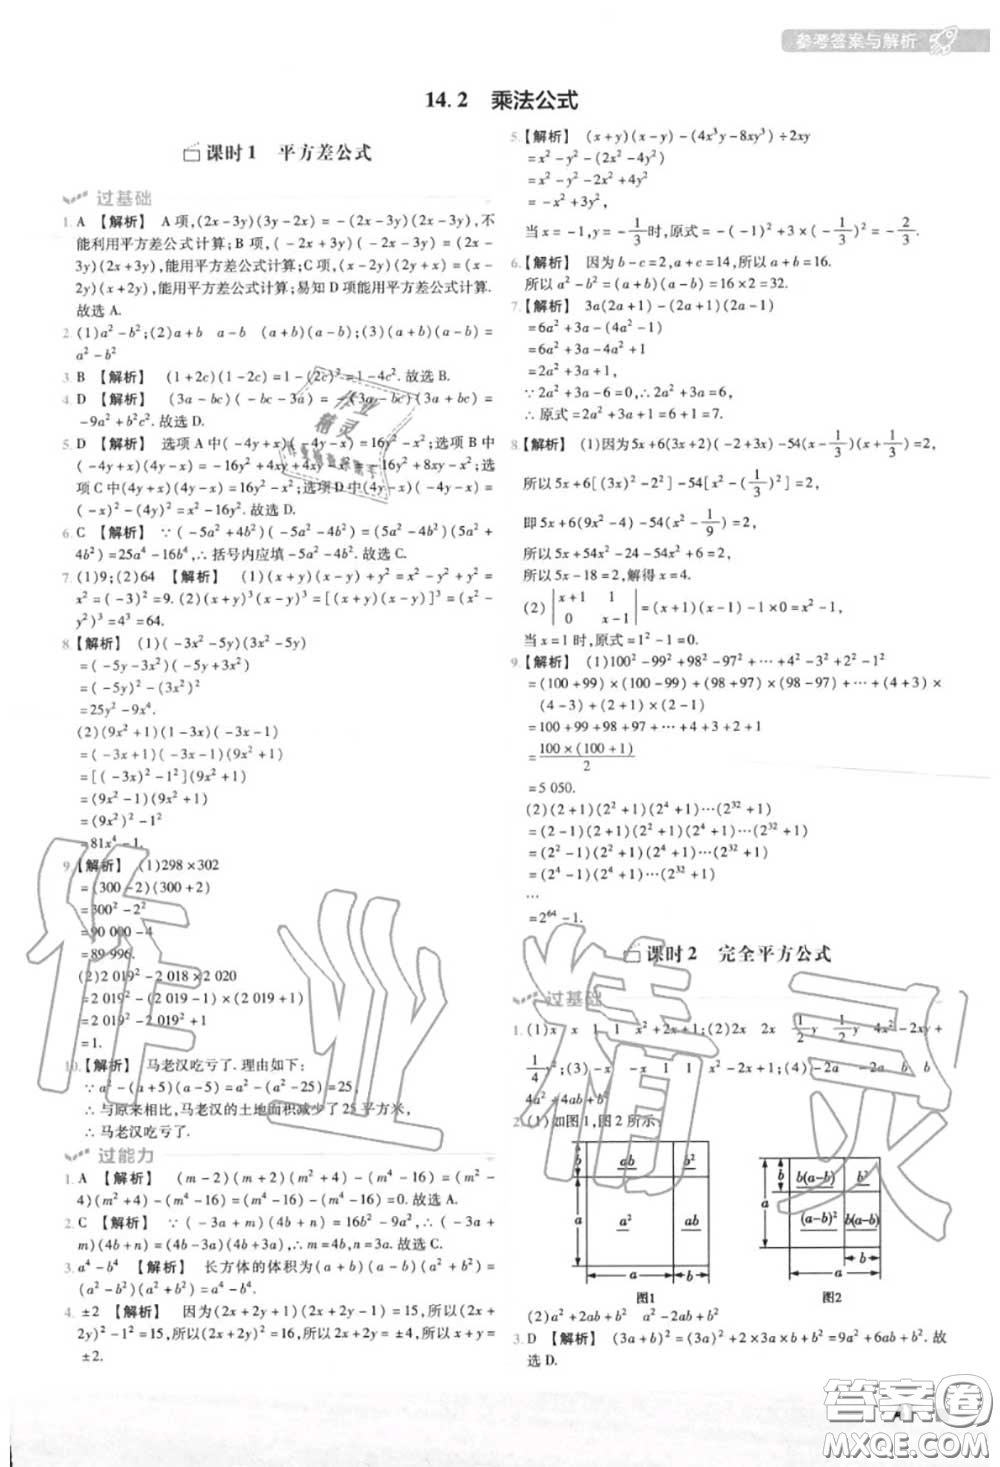 参考答案与解析
14.2 乘法公式
课时1 平方差公式
过基础
1. A 【解析】 A项,(2x-3y)(3y-2x)=-(2x-3y)(2x-3y),不
能利用平方差公式计算;B项,(-2x+3y)(-2x-3y)=(2x-
3y)(2x+3y),能用平方差公式计算;C项,(x-2y)(2y+x)=(x-
2y)(x+2y),能用平方差公式计算;易知D项能用平方差公式计算.
故选A.
2. (1)a²-b²;(2)a+b a-b (a+b)(a-b);(3)(a+b)(a-b)=
a²-b²
3. B 【解析】 (1+2c)(1-2c)=1-(2c)²=1-4c².故选B.
4. D 【解析】 (3a-bc)(-bc-3a)=-(3a-bc)(3a+bc)=
-9a²+b²c².故选D.
5. D 【解析】 选项A中(-4y+x)(-4y-x)=16y²-x²;选项B中
(-4y+x)(4y-x)=-16y²+4xy+4xy-x²=-16y²+8xy-x²;选
项C中(4y+x)(4y+x)=16y²+8xy+x²;选项D中(4y-x)(-4y-x)=
(-x)²-(4y)²=x²-16y².故选D.
6. C 【解析】 ∵(-5a²+4b²)(-5a²-4b²)=(5a²-4b²)(5a²+
4b²)=25a⁴-16b⁴,∴括号内应填-5a²-4b².故选C.
7. (1)9;(2)64 【解析】 (1)(x+y)(x-y)+y²=x²-y²+y²=
x²=(-3)²=9.(2)(x+y)³(x-y)³=[(x+y)(x-y)]³=(x²-
y²)³=4³=64.
8. 【解析】 (1)(-3x²-5y)(3x²-5y)
=(-5y-3x²)(-5y+3x²)
=(-5y)²-(3x²)²
=25y²-9x⁴.
(2)(9x²+1)(1-3x)(-3x-1)
=(-3x+1)(-3x-1)(9x²+1)
=[(-3x)²-1²](9x²+1)
=(9x²-1)(9x²+1)
=(9x²)²-1²
=81x⁴-1.
9. 【解析】 (1)298×302
=(300-2)(300+2)
=300²-2²
=90 000-4
=89 996.
(2)2 019²-2 018×2 020
=2 019²-(2 019-1)×(2 019+1)
=2 019²-2 019²+1
=1.
10. 【解析】 马老汉吃亏了.理由如下:
∵a²-(a+5)(a-5)=a²-(a²-25)=25,
∴与原来相比,马老汉的土地面积减少了25平方米,
∴马老汉吃亏了.
过能力
1. A 【解析】 (m-2)(m+2)(m²+4)-(m⁴-16)=(m²-
4)(m²+4)-(m⁴-16)=(m⁴-16)-(m⁴-16)=0.故选A.
2. C 【解析】 ∵(-3a+m)(4b+n)=16b²-9a²,∴(-3a+
m)(4b+n)=(4b+3a)(4b-3a),∴m=4b,n=3a.故选C.
3. a⁴-b⁴ 【解析】 长方体的体积为(a+b)(a-b)(a²+b²)=
(a²-b²)(a²+b²)=a⁴-b⁴.
4. ±2 【解析】 因为(2x+2y+1)(2x+2y-1)=15,所以(2x+
2y)²-1²=15,所以(2x+2y)²=16,所以2x+2y=±4,所以x+y=
±2.
5. 【解析】 (x+y)(x-y)-(4x³y-8xy³)÷2xy
=x²-y²-(2x²-4y²)
=x²-y²-2x²+4y²
=-x²+3y²,
当x=-1,y=-1/3时,原式=-(-1)²+3×(-1/3)²=-2/3.
6. 【解析】 因为b-c=2,a+c=14,所以a+b=16.
所以a²-b²=(a+b)(a-b)=16×2=32.
7. 【解析】 3a(2a+1)-(2a+1)(2a-1)
=6a²+3a-(4a²-1)
=6a²+3a-4a²+1
=2a²+3a+1,
∵2a²+3a-6=0,∴2a²+3a=6,
∴原式=2a²+3a+1=6+1=7.
8. 【解析】 (1)因为5x+6(3x+2)(-2+3x)-54(x-1/3)(x+1/3)=2,
所以5x+6[(3x)²-2²]-54[x²-(1/3)²]=2,
即5x+6(9x²-4)-54(x²-1/9)=2,
所以5x+54x²-24-54x²+6=2,
所以5x-18=2,解得x=4.
(2)|x+1 1; 0 x-1|=(x+1)(x-1)-1×0=x²-1,
当x=1时,原式=1²-1=0.
9. 【解析】 (1)100²-99²+98²-97²+…+4²-3²+2²-1²
=(100+99)×(100-99)+(98+97)×(98-97)+…+(4+3)×
(4-3)+(2+1)×(2-1)
=100+99+98+97+…+4+3+2+1
=100×(100+1)/2
=5 050.
(2)(2+1)(2²+1)(2⁴+1)…(2³²+1)
=(2-1)(2+1)(2²+1)(2⁴+1)…(2³²+1)
=(2²-1)(2²+1)(2⁴+1)…(2³²+1)
=(2⁴-1)(2⁴+1)…(2³²+1)
…
=2⁶⁴-1.
课时2 完全平方公式
过基础
1. (1)x x 1 1 x²+2x+1;(2)2x 2x 1/2y 1/2y 4x²-2xy+
1/4y²;(3)-x -x 1 1 x²-2x+1;(4)-2a -2a b b
4a²-4ab+b²
2. (1)如图1,图2所示:
b ab b²
a a² ab
a b
图1
b b(a-b) b²
a (a-b)² b(a-b)
b
a
图2
(2)a²+2ab+b² a²-2ab+b²
3. D 【解析】 (3a+b)²=(3a)²+2×3a×b+b²=9a²+6ab+b².故
选D.
作业精灵
作业精灵
答案圈
MXQE.COM